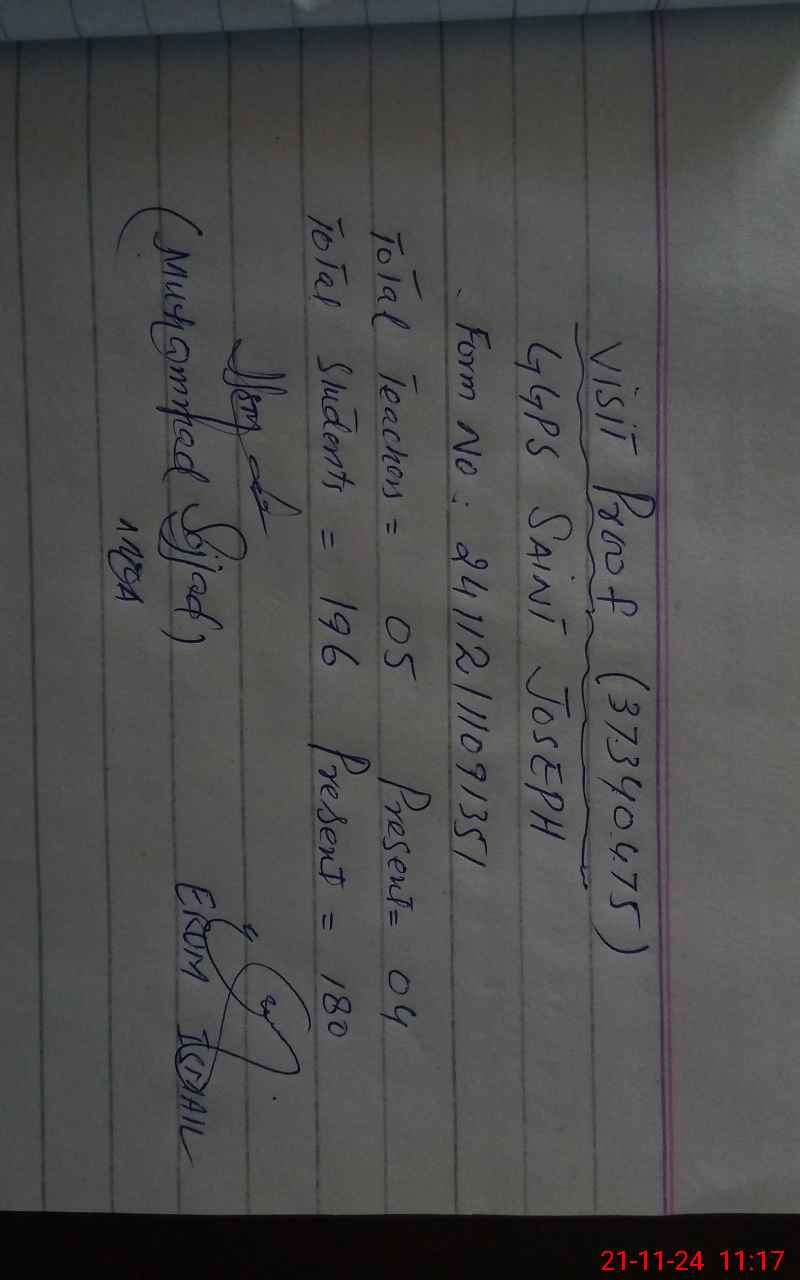 VISIT Proof (37340475)
GGPS SAINT JOSEPH
Form No: 2411211091351
Total Teachers = 05 Present = 04
Total Students = 196 Present = 180
(Muhammad Sajjad)
ERUM ISMAIL
21-11-24 11:17